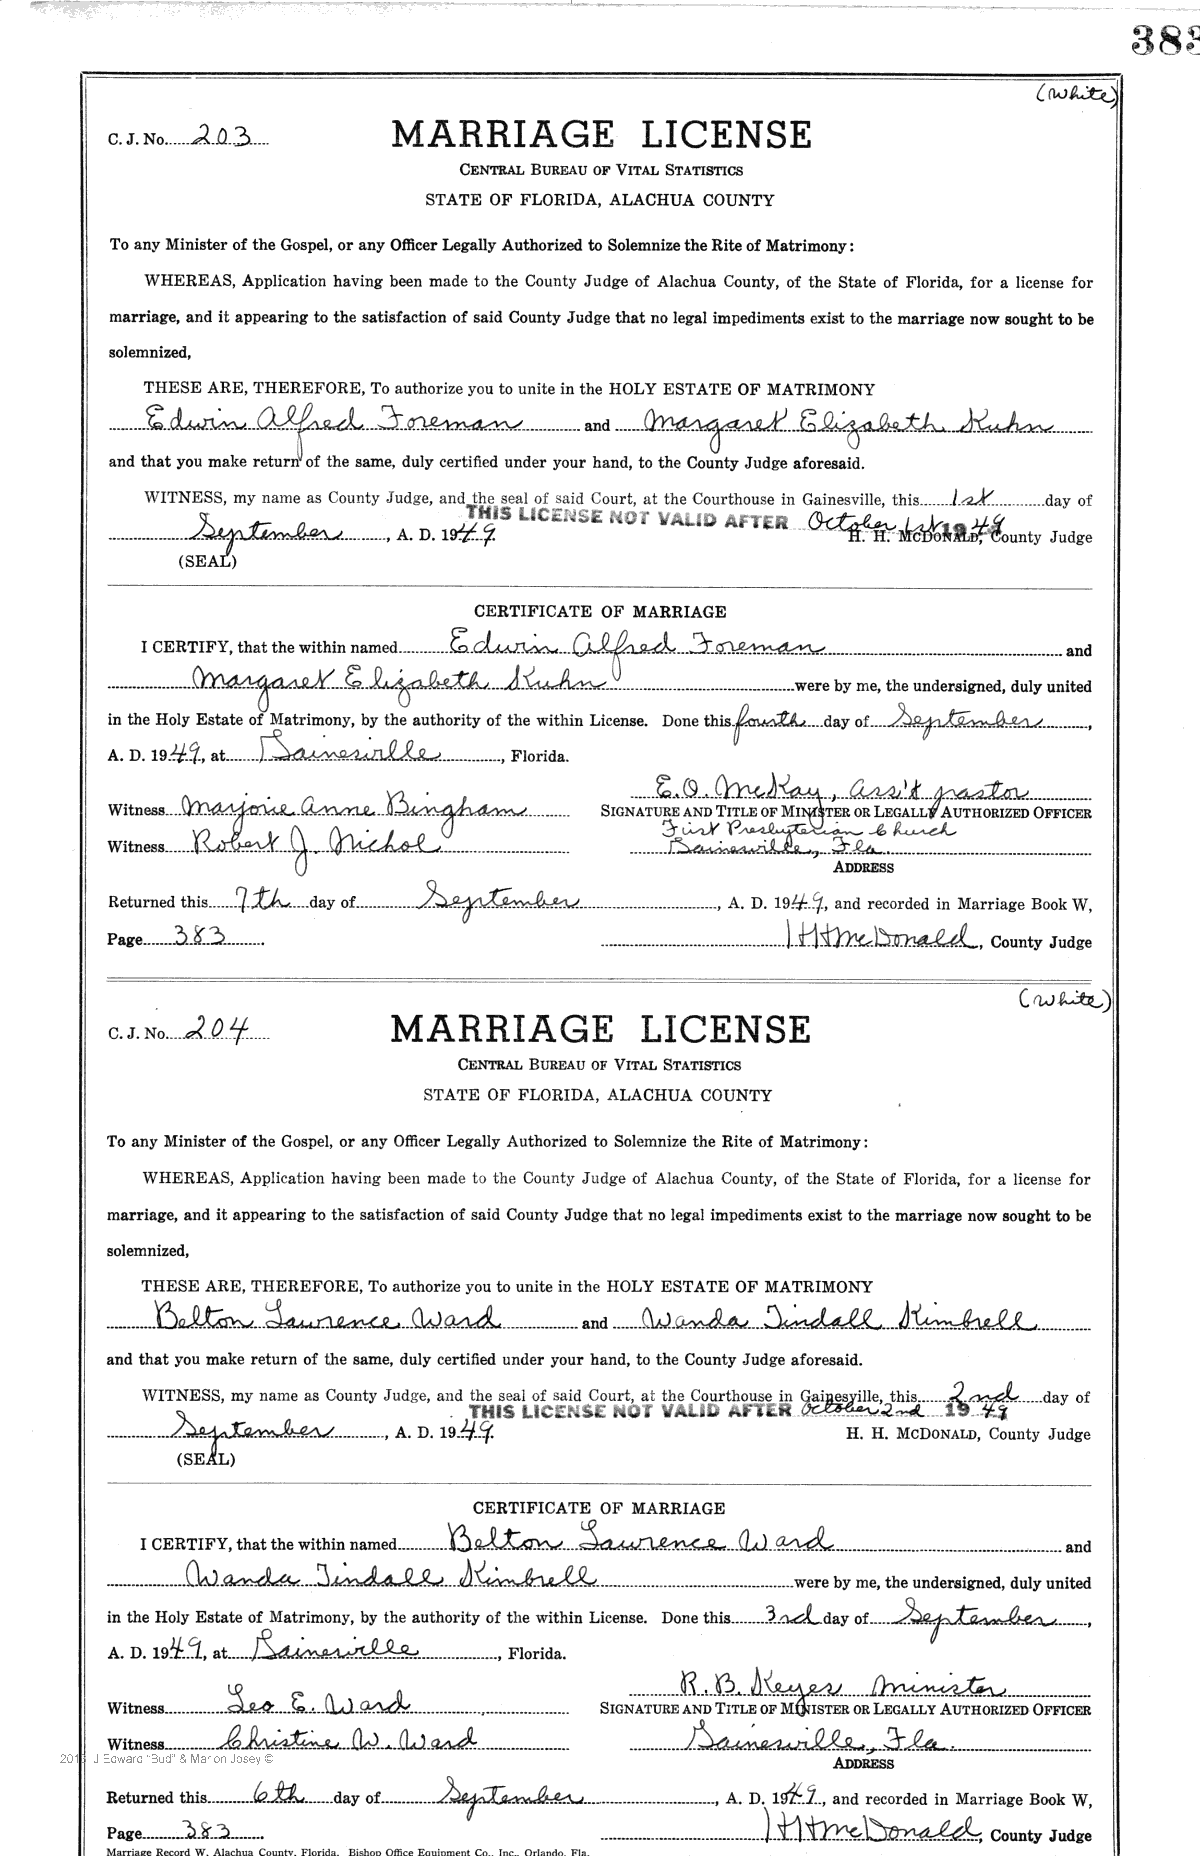 383
(White)
C. J. No. 203
MARRIAGE LICENSE
CENTRAL BUREAU OF VITAL STATISTICS
STATE OF FLORIDA, ALACHUA COUNTY
To any Minister of the Gospel, or any Officer Legally Authorized to Solemnize the Rite of Matrimony:
WHEREAS, Application having been made to the County Judge of Alachua County, of the State of Florida, for a license for
marriage, and it appearing to the satisfaction of said County Judge that no legal impediments exist to the marriage now sought to be
solemnized,
THESE ARE, THEREFORE, To authorize you to unite in the HOLY ESTATE OF MATRIMONY
Edwin Alfred Foreman and Margaret Elizabeth Kuhn
and that you make return of the same, duly certified under your hand, to the County Judge aforesaid.
WITNESS, my name as County Judge, and the seal of said Court, at the Courthouse in Gainesville, this 1st day of
THIS LICENSE NOT VALID AFTER October 1st 1949
September, A. D. 1949. H. H. MCDONALD, County Judge
(SEAL)
CERTIFICATE OF MARRIAGE
I CERTIFY, that the within named Edwin Alfred Foreman and
Margaret Elizabeth Kuhn were by me, the undersigned, duly united
in the Holy Estate of Matrimony, by the authority of the within License. Done this fourth day of September,
A. D. 1949, at Gainesville, Florida.
E. O. McKay, Ass't pastor
Witness Marjorie Anne Bingham SIGNATURE AND TITLE OF MINISTER OR LEGALLY AUTHORIZED OFFICER
First Presbyterian Church
Witness Robert J. Nichol Gainesville, Fla.
ADDRESS
Returned this 7th day of September, A. D. 1949, and recorded in Marriage Book W,
Page 383. HHMcDonald, County Judge
(White)
C. J. No. 204
MARRIAGE LICENSE
CENTRAL BUREAU OF VITAL STATISTICS
STATE OF FLORIDA, ALACHUA COUNTY
To any Minister of the Gospel, or any Officer Legally Authorized to Solemnize the Rite of Matrimony:
WHEREAS, Application having been made to the County Judge of Alachua County, of the State of Florida, for a license for
marriage, and it appearing to the satisfaction of said County Judge that no legal impediments exist to the marriage now sought to be
solemnized,
THESE ARE, THEREFORE, To authorize you to unite in the HOLY ESTATE OF MATRIMONY
Belton Lawrence Ward and Wanda Tindall Kimbrell
and that you make return of the same, duly certified under your hand, to the County Judge aforesaid.
WITNESS, my name as County Judge, and the seal of said Court, at the Courthouse in Gainesville, this 2nd day of
THIS LICENSE NOT VALID AFTER October 2nd 1949
September, A. D. 1949. H. H. MCDONALD, County Judge
(SEAL)
CERTIFICATE OF MARRIAGE
I CERTIFY, that the within named Belton Lawrence Ward and
Wanda Tindall Kimbrell were by me, the undersigned, duly united
in the Holy Estate of Matrimony, by the authority of the within License. Done this 3rd day of September,
A. D. 1949, at Gainesville, Florida.
R. B. Keyes Minister
Witness Leo E. Ward SIGNATURE AND TITLE OF MINISTER OR LEGALLY AUTHORIZED OFFICER
Witness Christine W. Ward Gainesville, Fla.
J Edward "Bud" & Marion Josey ©
ADDRESS
Returned this 6th day of September, A. D. 1949, and recorded in Marriage Book W,
Page 383. HHMcDonald, County Judge
Marriage Record W, Alachua County, Florida. Bishop Office Equipment Co., Inc., Orlando, Fla.